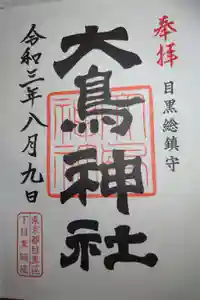 奉拝
目黒総鎮守
大鳥神社
令和三年八月九日
東京都目黒区